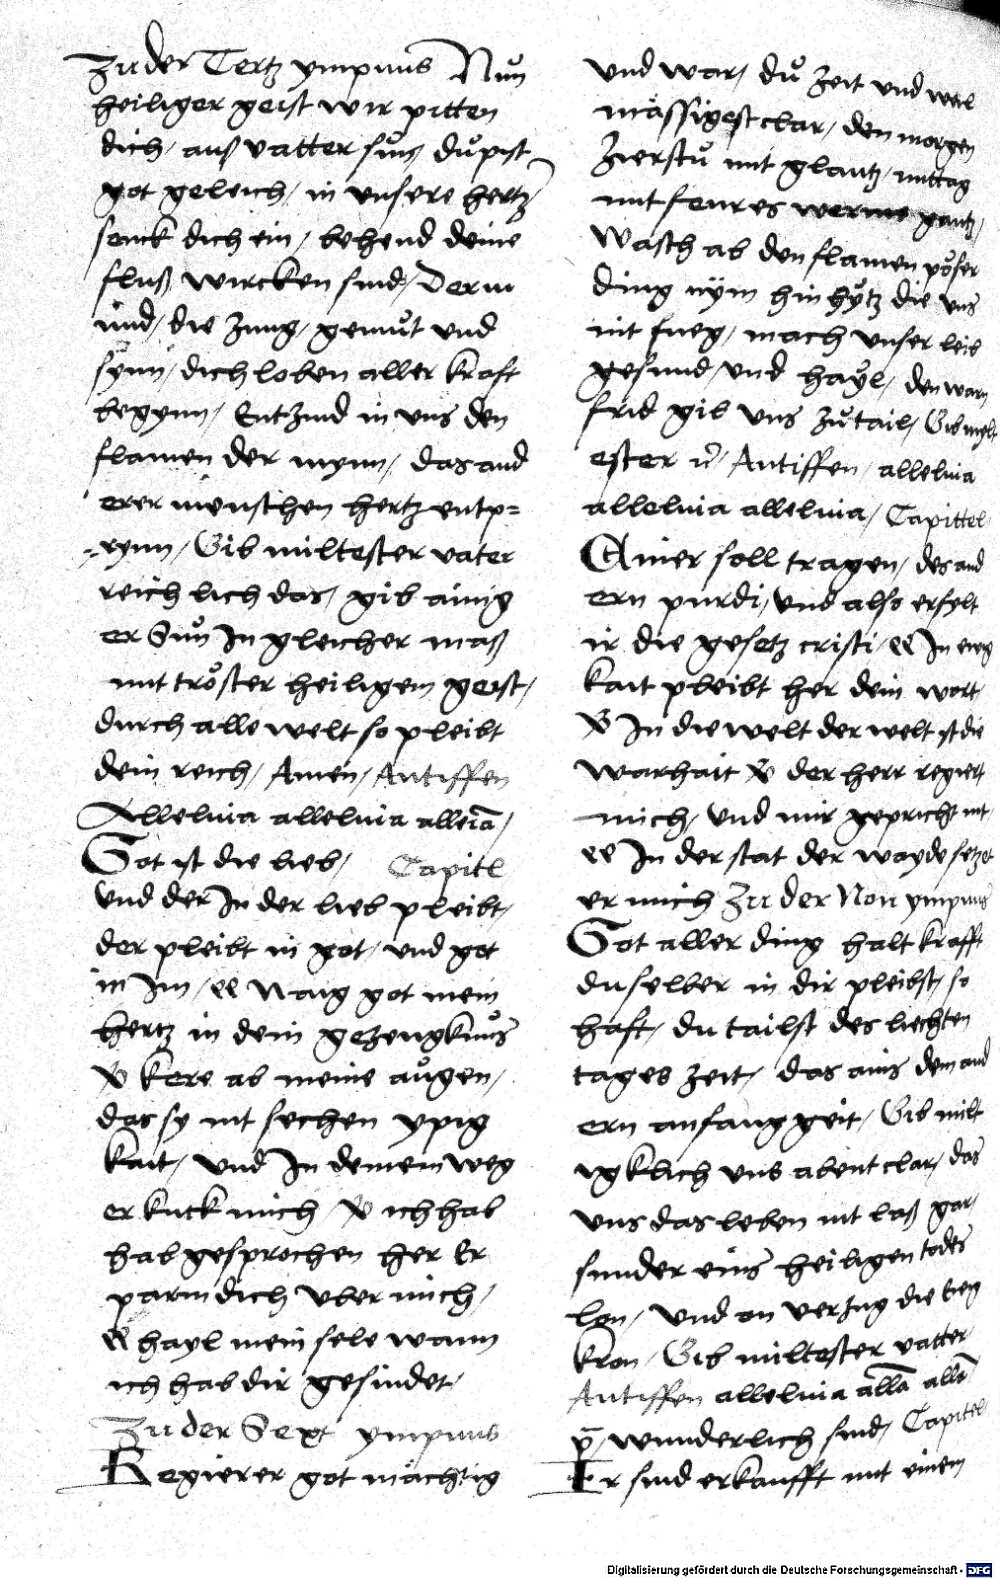 Zu der Tertz ympnus Nuͦn
heiliger geist wir pitten
dich / auß vatter suͦn / duͦ pist
got geleich / in unsere hertz /
senck dich ein / behend deine
fluß wircken sind / Der m
und / die zung / gemuͦt und
synn / dich loben aller kraft
begynn / Entzind in uns den
flamen der mynn / das and
erer menschen hertz entp=
=rynn / Gib miltester vater
reichlich das / gib ainig
er Suͦn In gleicher maß
mit troͤster heiligem geist /
durch alle welt so pleibt
dein reich / Amen / Antiffen
Alleluia alleluia alleiā /
Got ist die lieb / Capitl
Und der In der lieb pleibt /
der pleibt in got / und got
in Im / ℟ Naig got mein
hertz in dein gezeugknuͦs
℣ kere ab meine auͦgen /
das sy nit sechen ypig
kait / und In deinem weg
erkuck mich / ℣ ich hab
hab gesprochen her Er
parm dich uber mich /
℟ hayl mein sele wann
ich hab dir gesindet /
Zu der Sext ympnus
Regierer got maͤchtig
und war / duͦ zeit und weil
maͤssigest clar / den morgen
zierstuͦ mit glantz / mittag
mit feures werme gantz /
Wasch ab den flamen poͤser
ding nym hin hytz die uns
nit fueg / mach unser leib
gesund / und hayl / den warn
frid gib uns zuͦ tail / Gib mylt
ester v̄ / Antiffen / alleluia
alleluia alleluia / Capittel
Ainer soll tragen / des and
ern purdi / und also erfylt
ir die gesetz cristi / ℟ In ewig
kait pleibt her dein wort
℣ In die welt der welt ist die
warhait ℣ der herr regiert
mich / und mir gepricht nit /
℟ In der stat der wayde setzet
er mich Zu der Non ympnus
Got aller ding halt krafft
du selber in dir pleibst / so
haft / du tailst des liechten
tages zeit / das ains dem and
ern anfang geit / Gib milt
igklich uns abent clar / das
uns das leben nit laß gar /
sunder eins heiligen todes
lon / und on verzug die ewig
kron / Gib miltester vatter
Antiffen alleluia allā allē
p̄ / wunderlich sind / Capitel
Ir sind erkaufft mit einem
Digitalisierung gefördert durch die Deutsche Forschungsgemeinschaft - DFG